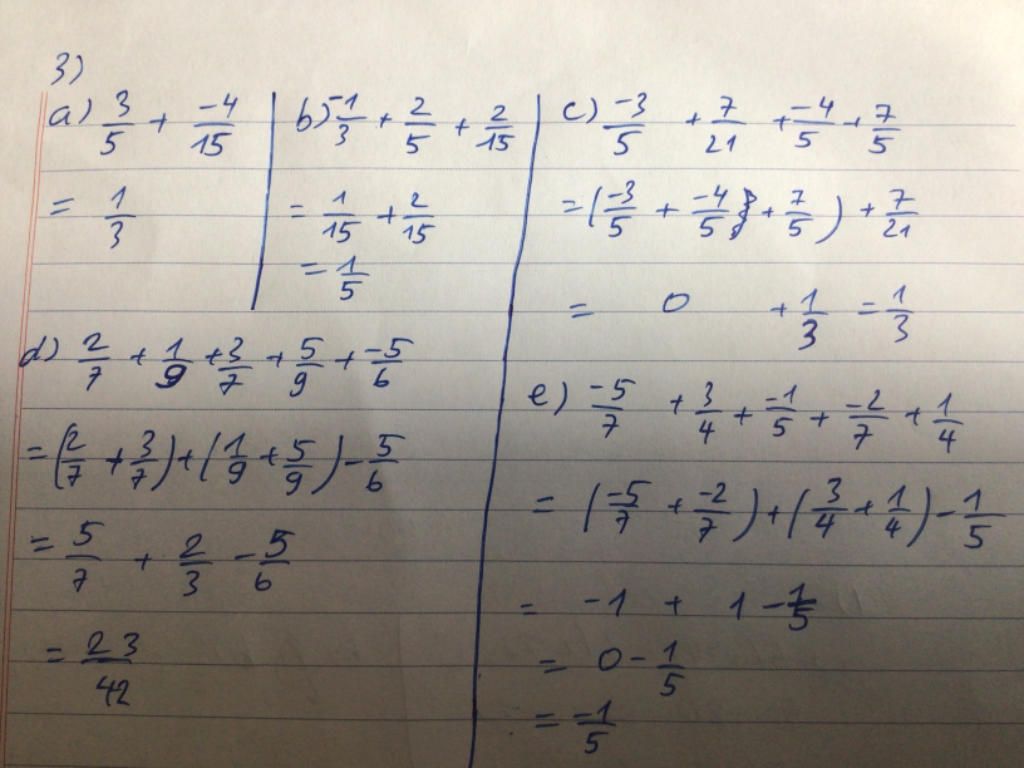 3)
a) 3/5 + -4/15
= 1/3
b) -1/3 + 2/5 + 2/15
= 1/15 + 2/15
= 1/5
c) -3/5 + 7/21 + -4/5 + 7/5
= (-3/5 + -4/5 + 7/5) + 7/21
= 0 + 1/3 = 1/3
d) 2/7 + 1/9 + 3/7 + 5/9 + -5/6
= (2/7 + 3/7) + (1/9 + 5/9) - 5/6
= 5/7 + 2/3 - 5/6
= 23/42
e) -5/7 + 3/4 + -1/5 + -2/7 + 1/4
= (-5/7 + -2/7) + (3/4 + 1/4) - 1/5
= -1 + 1 - 1/5
= 0 - 1/5
= -1/5